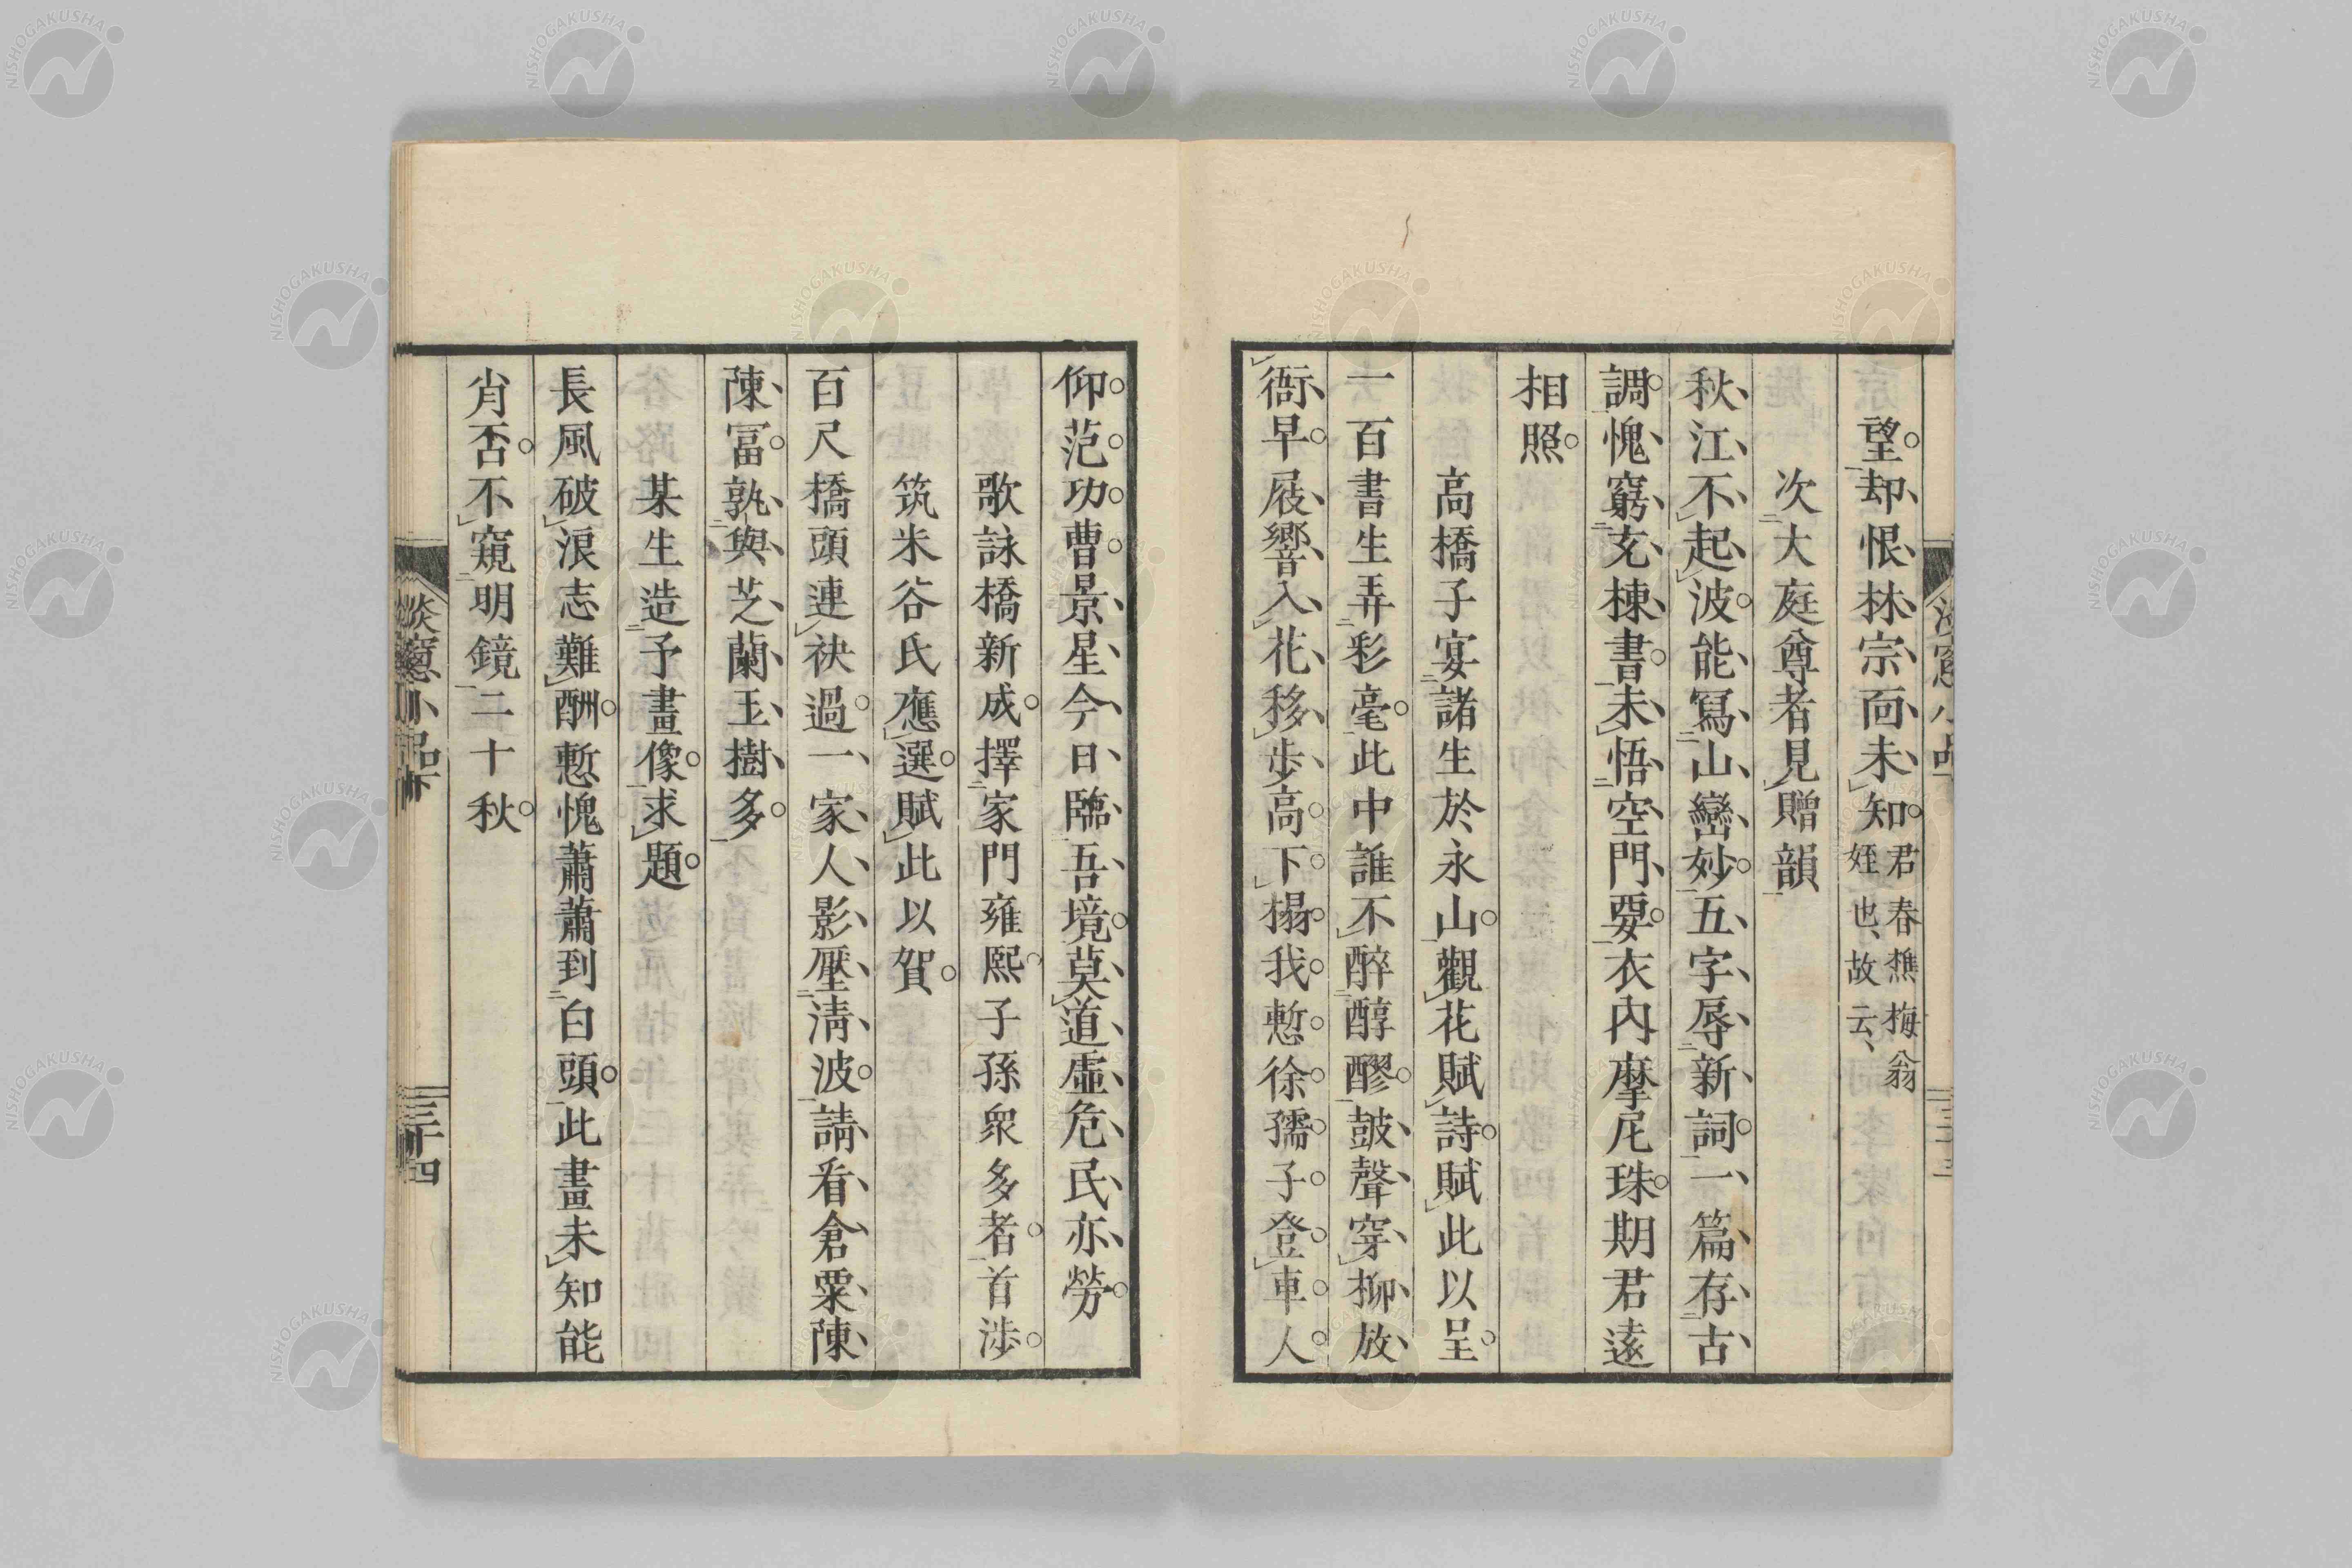 望却恨林宗面未知君春樵梅翁
姪也故云
次大庭尊者見贈韻
秋江不起波能寫山巒妙五字辱新詞一篇存古
調愧窮充棟書未悟空門要衣內摩尼珠期君遠
相照
高橋子宴諸生於永山觀花賦詩賦此以呈
一百書生弄彩毫此中誰不醉醇醪鼓聲穿柳放
衙早屐響入花移步高下榻我慙徐孺子登車人
仰范功曹景星今日臨吾境莫道虛危民亦勞
歌詠橋新成擇家門雍熙子孫衆多者首涉
筑米谷氏應選賦此以賀
百尺橋頭連袂過一家人影壓清波請看倉粟陳
陳富孰與芝蘭玉樹多
某生造予畫像求題
長風破浪志難酬慙愧蕭蕭到白頭此畫未知能
肖否不窺明鏡二十秋
淡窻小品下
三十四
NISHOGAKUSHA